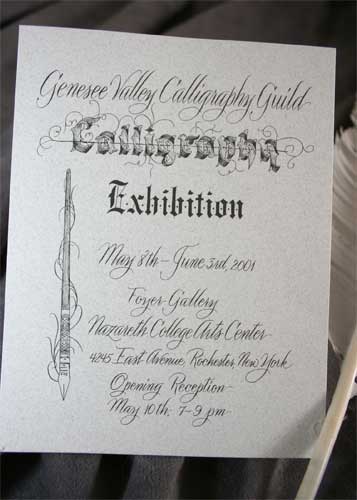 Genesee Valley Calligraphy Guild
Calligraphy
Exhibition
May 8th - June 3rd, 2001
Foyer Gallery
Nazareth College Arts Center
4245 East Avenue, Rochester, New York
Opening Reception
May 10th, 7-9 pm